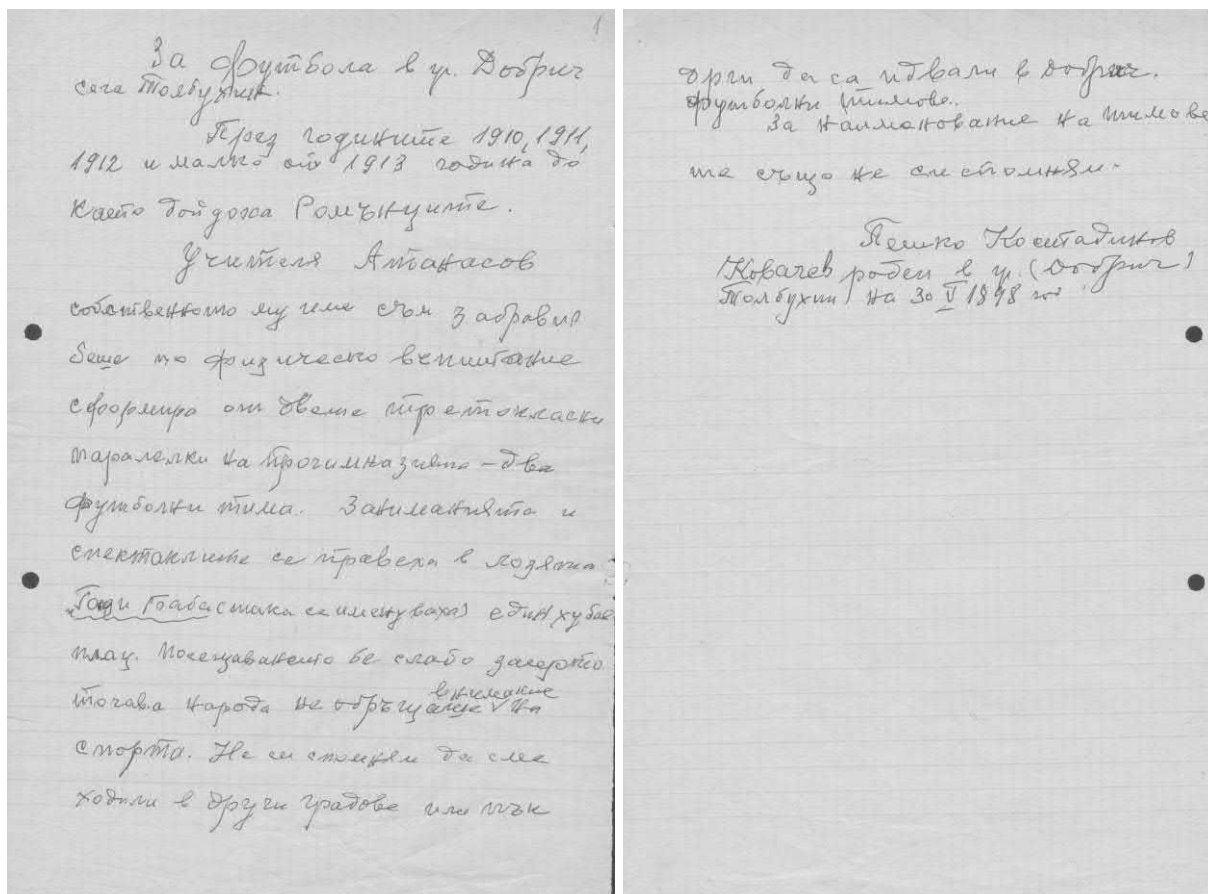 1
За футбола в гр. Добрич
сега Толбухин.
През годините 1910, 1911,
1912 и малко от 1913 година до
като дойдоха Ромънците.
Учителя Атанасов
собственното му име съм забравил
беше по физическо възпитание
сформира от двете третокласни
паралелки на прогимназията – два
футболни тима. Заниманията и
спектаклите се правеха в лозята
се именуваха) един хубав
плац. Посещаването бе слабо защото
тогава народа не обръщаше внимание на
спорта. Не си спомням да сме
ходили в други градове или пък
други да са идвали в Добрич.
футболни тимове.
За наименование на тимове
те също не си спомням.
Пешко Костадинов
Ковачев роден в гр. (Добрич)
Толбухин на 30 V 1898 год.